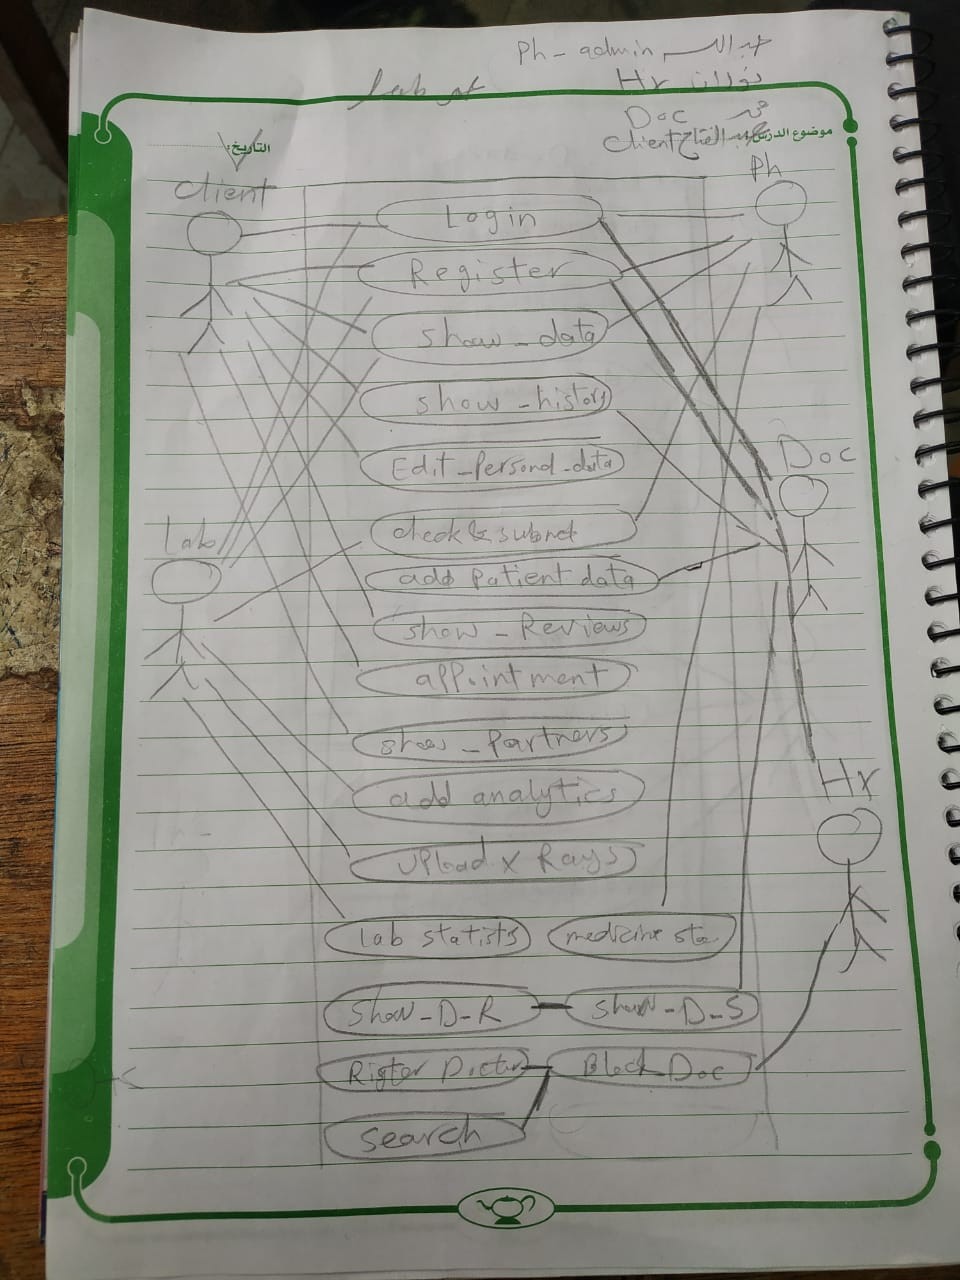 Ph - admin عبدالله
Hr نوران
Lab عمر
Doc محمد
موضوع الدرس
Client عبدالفتاح
التاريخ:
Client
Ph
Login
Register
show_data
show_history
Doc
Edit_Persond_data
Lab
check & submet
add Patient data
show_Reviews
appointment
show_Partners
Hr
add analytics
upload x Rays
Lab statists
medicine sta
Show_D_R
Show_D_S
Rigter Doctur
Block_Doc
search